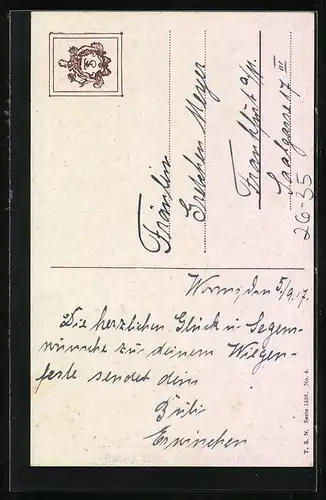 Fräulein
Gretchen Meyer
Frankfurt a/M.
Saalgasse 17 III
26-35
Worms, den 5/9.17.
Die herzlichen Glück u Segens-
wünsche zu deinem Wiegen-
feste sendet dein
Erwinchen
T. S. N. Serie 1558. No. 4.